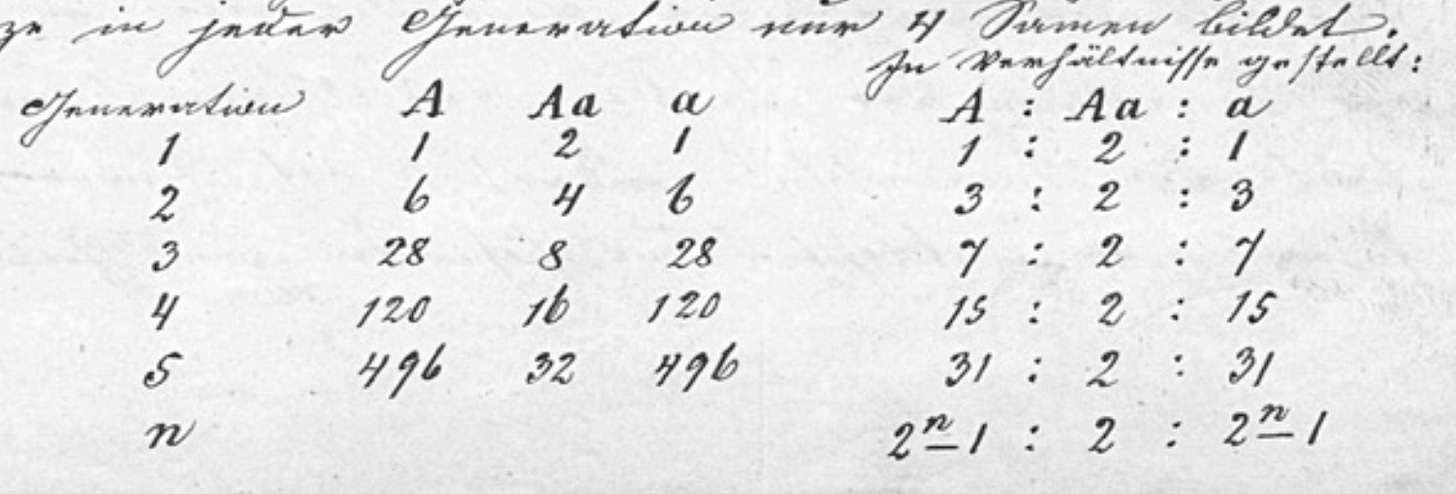 ze in jeder Generation nur 4 Samen bildet.
In Verhältnisse gestellt:
Generation A Aa a A : Aa : a
1 1 2 1 1 : 2 : 1
2 6 4 6 3 : 2 : 3
3 28 8 28 7 : 2 : 7
4 120 16 120 15 : 2 : 15
5 496 32 496 31 : 2 : 31
n 2ⁿ-1 : 2 : 2ⁿ-1